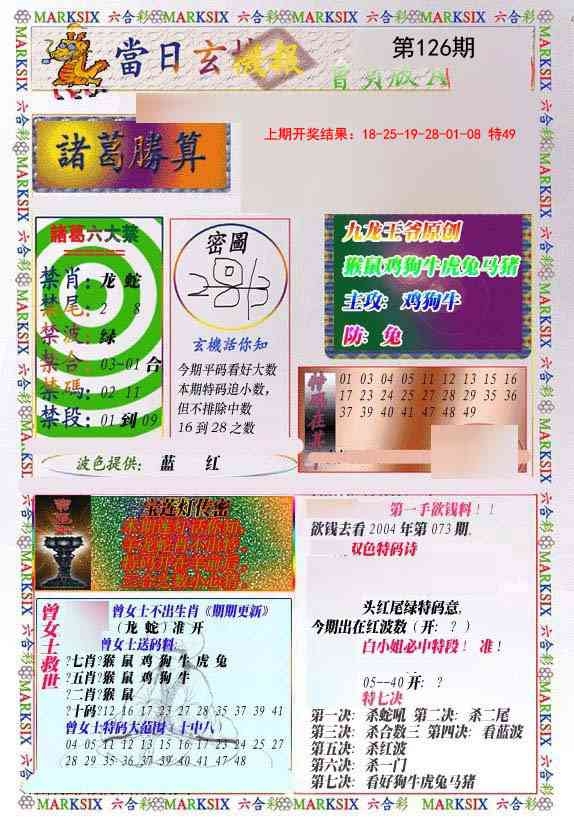 MARKSIX 六合彩 MARKSIX 六合彩 MARKSIX 六合彩 MARKSIX 六合彩
當日玄机
機報
第126期
上期开奖结果：18-25-19-28-01-08 特49
諸葛勝算
諸葛六大禁
禁肖：龙 蛇
禁尾：2 8
禁波：绿
禁合：03-01 合
禁碼：02 11
禁段：01 到 09
密圖
玄機話你知
今期平码看好大数
本期特码追小数，
但不排除中数
16 到 28 之数
波色提供： 蓝 红
九龙王爷原创
猴鼠鸡狗牛虎兔马猪
主攻：鸡狗牛
防：兔
01 03 04 05 11 12 13 15 16
17 23 24 25 27 28 29 35 36
37 39 40 41 47 48 49
宝莲灯传密
第一手欲钱料！！
欲钱去看 2004 年第 073 期.
双色特码诗
头红尾绿特码意，
今期出在红波数（开：？）
白小姐必中特段！ 准！
05--40 开：？
特七决
第一决：杀蛇吼 第二决：杀二尾
第三决：杀合数三 第四决：看蓝波
第五决：杀红波
第六决：杀一门
第七决：看好狗牛虎兔马猪
曾女士救世
曾女士不出生肖《期期更新》
（龙 蛇）准 开
曾女士送码料:
?七肖?猴 鼠 鸡 狗 牛 虎 兔
?五肖?猴 鼠 鸡 狗 牛
?二肖?猴 鼠
?十码?12 16 17 23 27 28 35 37 39 41
曾女士特码大范围（十中八）
04 05 11 12 13 15 16 17 23 24 25 27
28 29 35 36 37 39 40 41 47 48
MARKSIX 六合彩 MARKSIX 六合彩 MARKSIX 六合彩 MARKSIX 六合彩